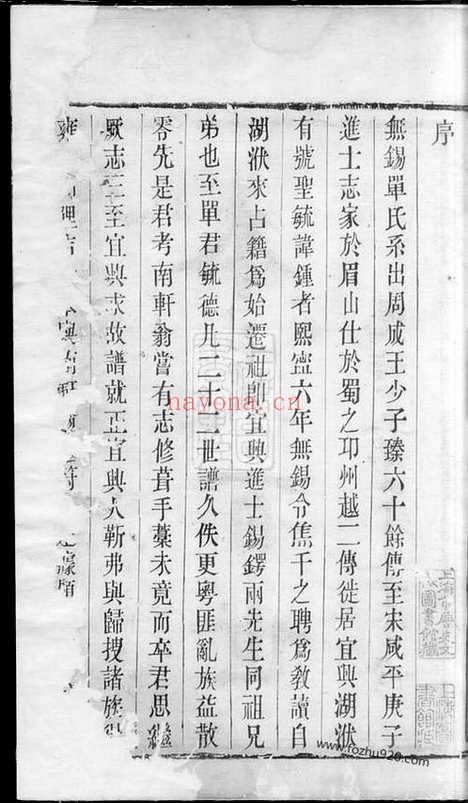 序
無錫單氏系出周成王少子臻六十餘傳至宋咸平庚子
進士志家於眉山仕於蜀之邛州越二傳徙居宜興湖㳇
有號聖毓諱鍾者熙寧六年無錫令焦千之聘爲教讀自
湖㳇來占籍爲始遷祖即宜興進士錫鍔兩先生同祖兄
弟也至單君毓德凡二十二世譜久佚更粵匪亂族益散
零先是君考南軒翁嘗有志修葺手藁未竟而卒君思繼
厥志三至宜興求故譜就正宜興人靳弗與歸搜諸族
nayona.cn
www.fozhu920.com